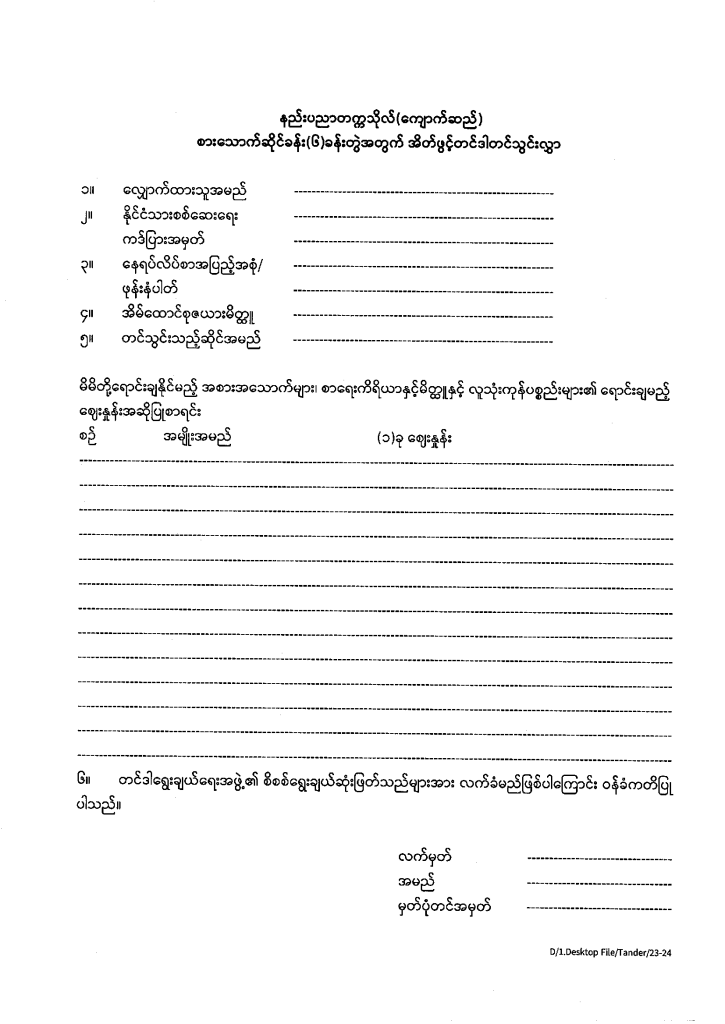 နည်းပညာတက္ကသိုလ်(ကျောက်ဆည်)
စားသောက်ဆိုင်ခန်း(၆)ခန်းတွဲအတွက် အိတ်ဖွင့်တင်ဒါတင်သွင်းလွှာ
၁။ လျှောက်ထားသူအမည် ----------------------------------------------------------
၂။ နိုင်ငံသားစစ်ဆေးရေး ----------------------------------------------------------
ကဒ်ပြားအမှတ် ----------------------------------------------------------
၃။ နေရပ်လိပ်စာအပြည့်အစုံ/ ----------------------------------------------------------
ဖုန်းနံပါတ် ----------------------------------------------------------
၄။ အိမ်ထောင်စုဇယားမိတ္တူ ----------------------------------------------------------
၅။ တင်သွင်းသည့်ဆိုင်အမည် ----------------------------------------------------------
မိမိတို့ရောင်းချနိုင်မည့် အစားအသောက်များ၊ စာရေးကိရိယာနှင့်မိတ္တူနှင့် လူသုံးကုန်ပစ္စည်းများ၏ ရောင်းချမည့်
ဈေးနှုန်းအဆိုပြုစာရင်း
စဉ် အမျိုးအမည် (၁)ခု ဈေးနှုန်း
၆။ တင်ဒါရွေးချယ်ရေးအဖွဲ့၏ စိစစ်ရွေးချယ်ဆုံးဖြတ်သည်များအား လက်ခံမည်ဖြစ်ပါကြောင်း ဝန်ခံကတိပြု
ပါသည်။
လက်မှတ် --------------------------------
အမည် --------------------------------
မှတ်ပုံတင်အမှတ် --------------------------------
D/1.Desktop File/Tander/23-24